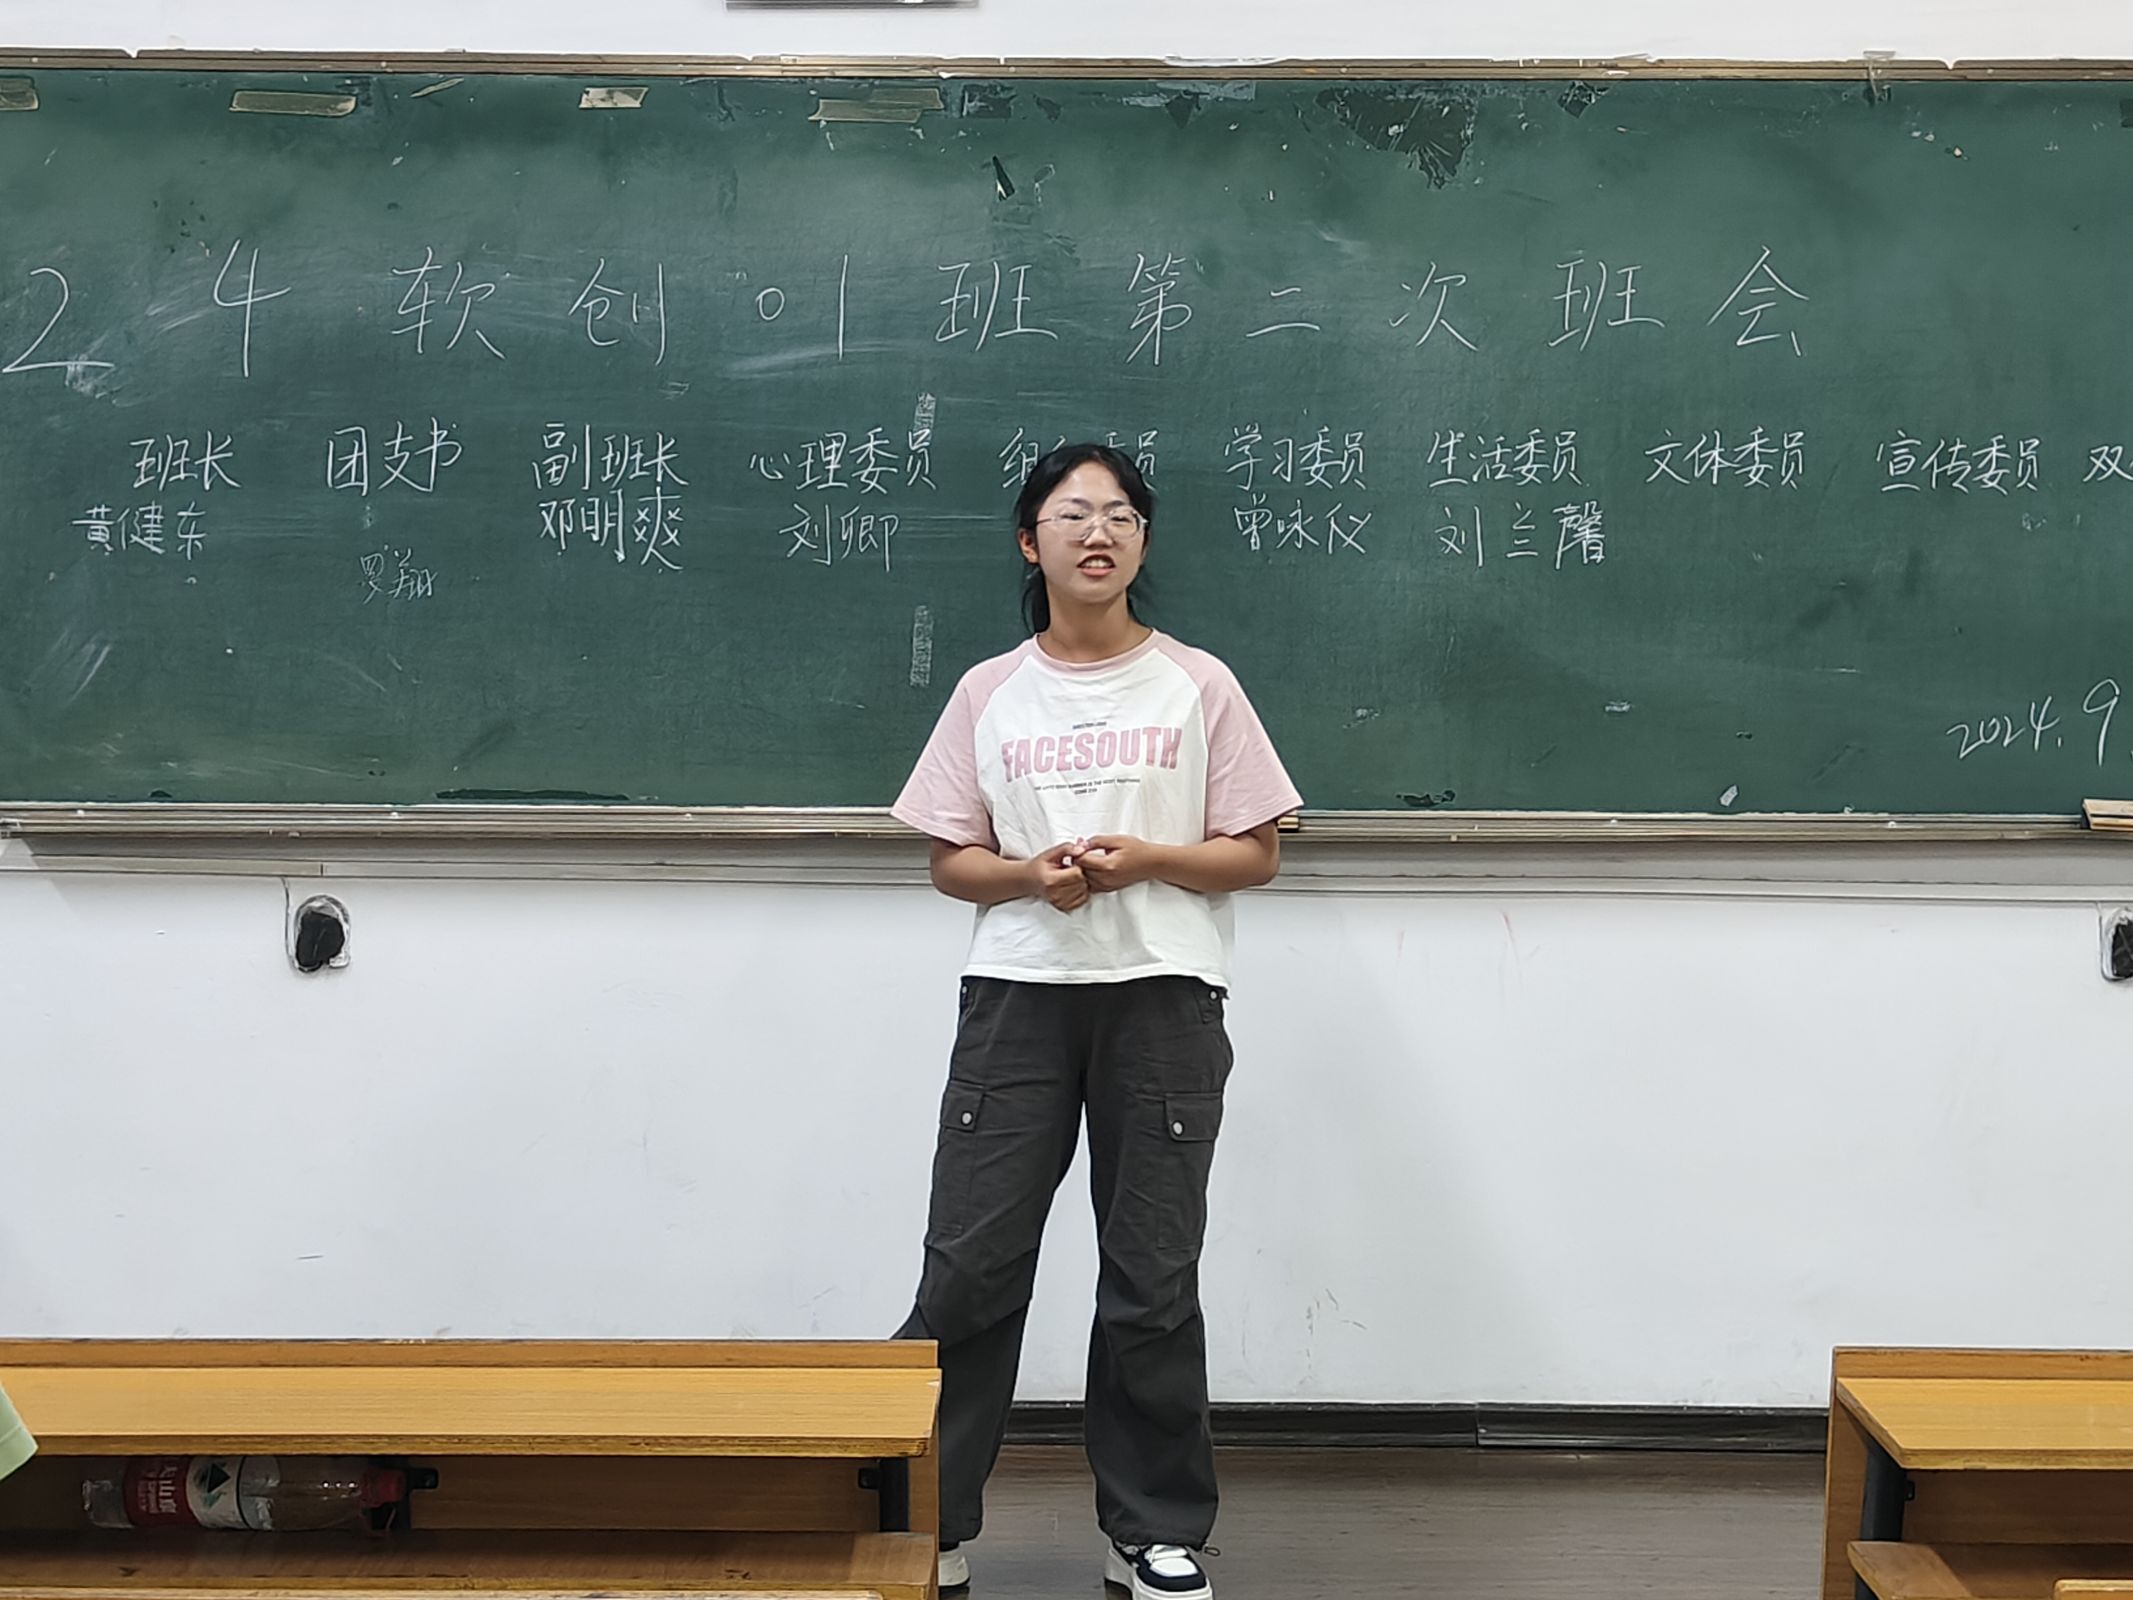 24软创01班第二次班会
班长 团支书 副班长 心理委员 组 员 学习委员 生活委员 文体委员 宣传委员 双
黄健东 罗翔 邓明爽 刘卿 曾咏仪 刘兰馨
2024.9.
FACESOUTH